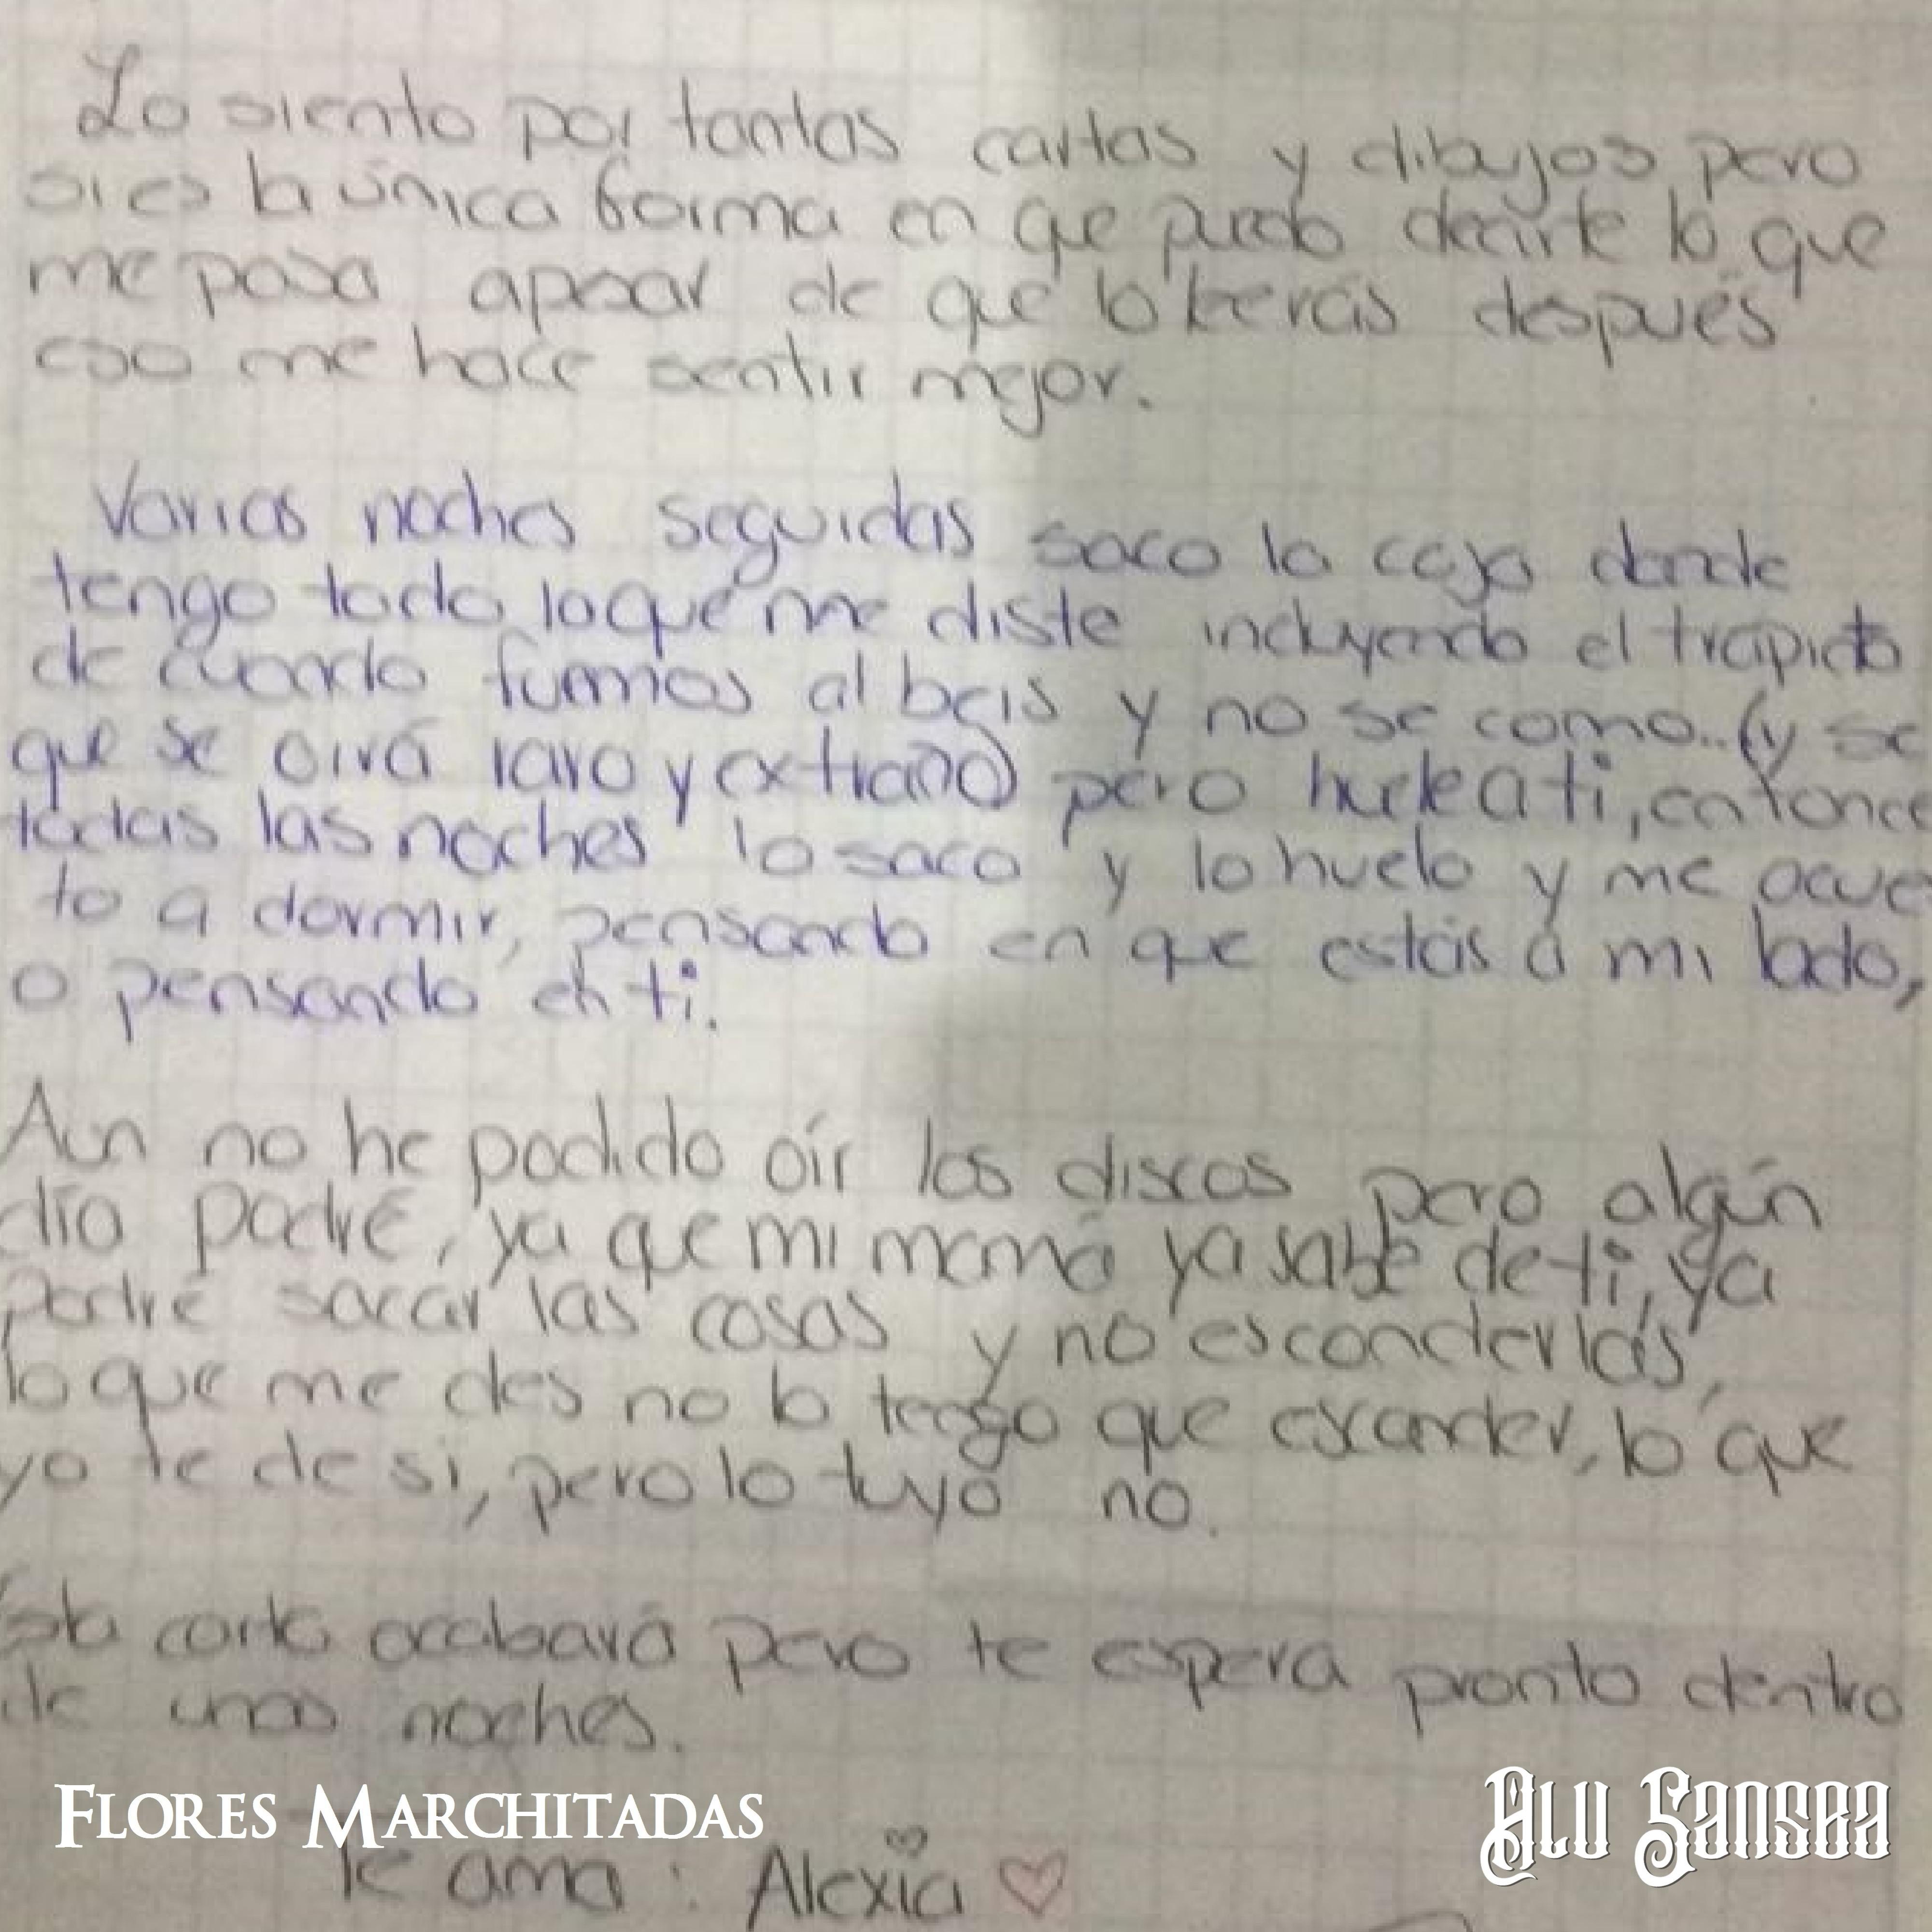 Lo siento por tantas cartas y dibujos pero
si es la única forma en que puedo decirte lo que
me pasa apesar de que lo leerás después
eso me hace sentir mejor.
Varias noches seguidas saco la caja donde
tengo todo lo que me diste incluyendo el trapito
de cuando fuimos al beis y no se como..(y se
que se oirá raro y extraño) pero huele a ti, entonce
todas las noches lo saco y lo huelo y me acues
to a dormir, pensando en que estás a mi lado,
o pensando en ti.
Aún no he podido oír los discos pero algún
día podré, ya que mi mamá ya sabe de ti, ya
podré sacar las cosas y no esconderlas,
lo que me des no lo tengo que esconder, lo que
yo te de si, pero lo tuyo no.
Esta carta acabará pero te espera pronto dentro
de unas noches.
FLORES MARCHITADAS
Alu Sansea
Te ama: Alexia